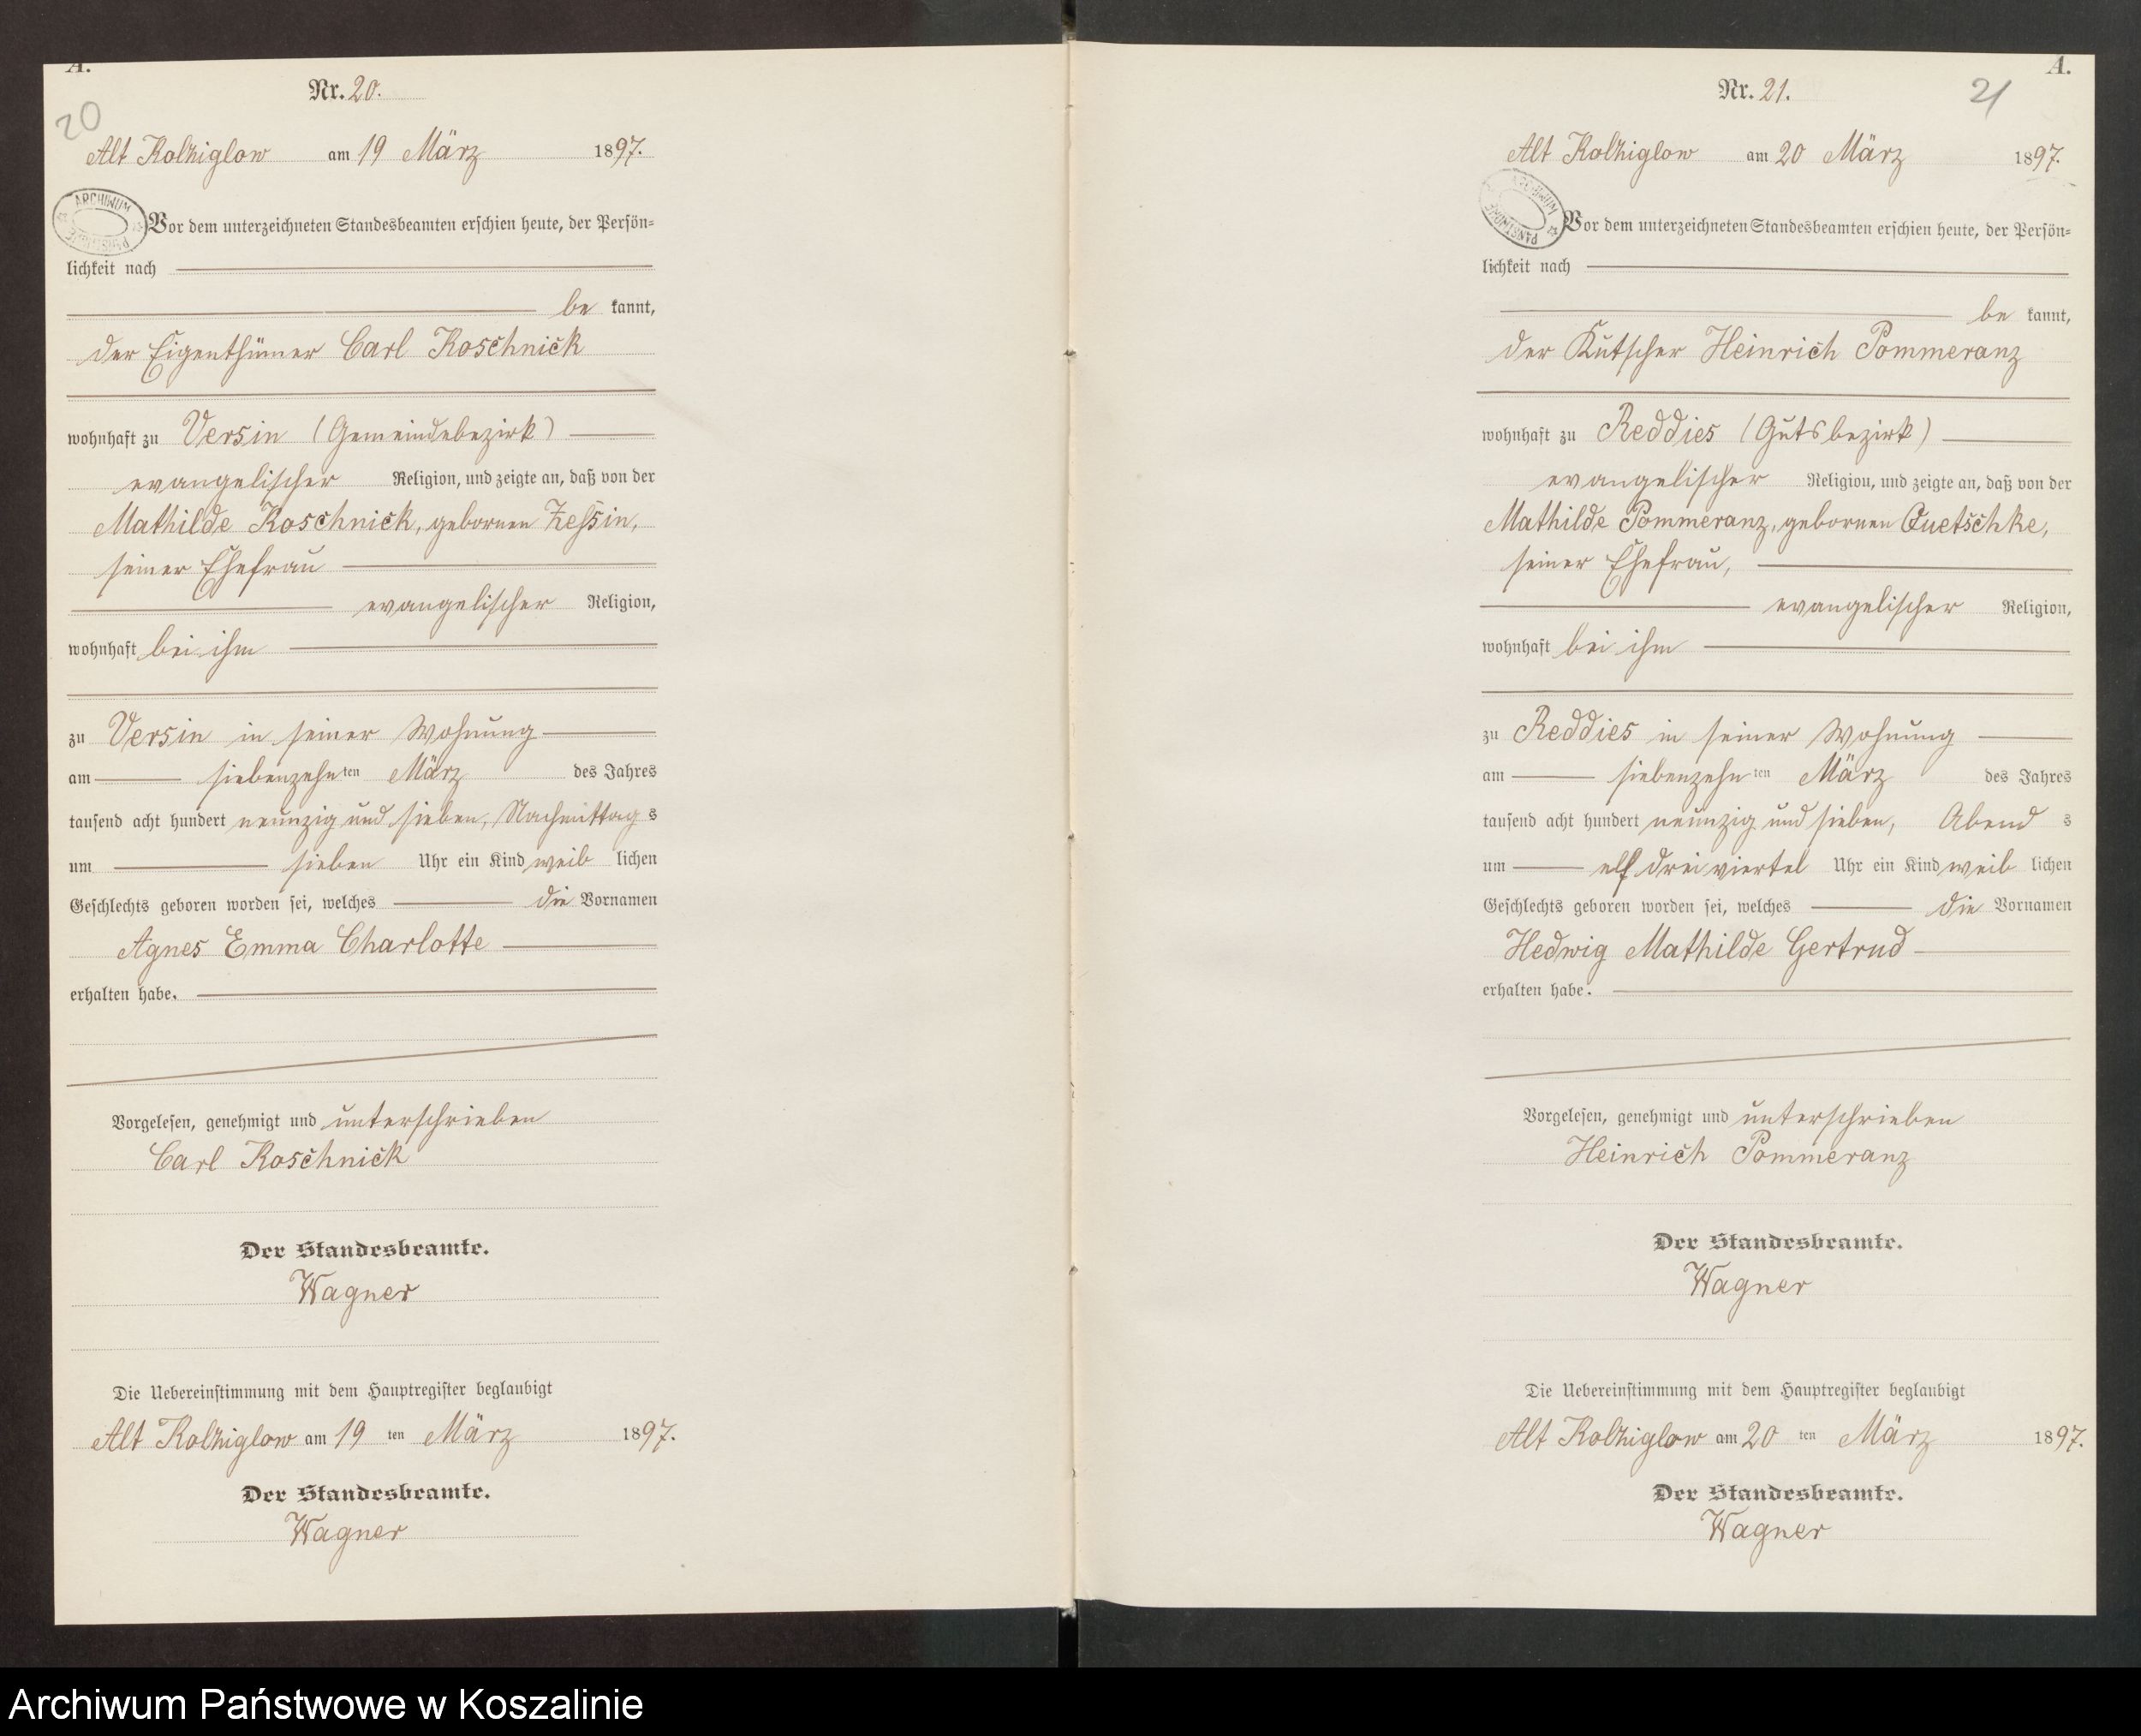 A.
Nr. 20.
20
Alt Kolziglow am 19 März 1897.
ARCHIWUM PAŃSTWOWE
Vor dem unterzeichneten Standesbeamten erschien heute, der Persön-
lichkeit nach
be kannt,
der Eigenthümer Carl Koschnick
wohnhaft zu Versin (Gemeindebezirk)
evangelischer Religion, und zeigte an, daß von der
Mathilde Koschnick, gebornen Zessin,
seiner Ehefrau
evangelischer Religion,
wohnhaft bei ihm
zu Versin in seiner Wohnung
am siebenzehn ten März des Jahres
tausend acht hundert neunzig und sieben, Nachmittag s
um sieben Uhr ein Kind weib lichen
Geschlechts geboren worden sei, welches die Vornamen
Agnes Emma Charlotte
erhalten habe.
Vorgelesen, genehmigt und unterschrieben
Carl Koschnick
Der Standesbeamte.
Wagner
Die Uebereinstimmung mit dem Hauptregister beglaubigt
Alt Kolziglow am 19 ten März 1897.
Der Standesbeamte.
Wagner
A.
Nr. 21.
21
Alt Kolziglow am 20 März 1897.
ARCHIWUM PAŃSTWOWE
Vor dem unterzeichneten Standesbeamten erschien heute, der Persön-
lichkeit nach
be kannt,
der Kutscher Heinrich Pommeranz
wohnhaft zu Reddies (Gutsbezirk)
evangelischer Religion, und zeigte an, daß von der
Mathilde Pommeranz, gebornen Quetschke,
seiner Ehefrau,
evangelischer Religion,
wohnhaft bei ihm
zu Reddies in seiner Wohnung
am siebenzehn ten März des Jahres
tausend acht hundert neunzig und sieben, Abend s
um elf dreiviertel Uhr ein Kind weib lichen
Geschlechts geboren worden sei, welches die Vornamen
Hedwig Mathilde Gertrud
erhalten habe.
Vorgelesen, genehmigt und unterschrieben
Heinrich Pommeranz
Der Standesbeamte.
Wagner
Die Uebereinstimmung mit dem Hauptregister beglaubigt
Alt Kolziglow am 20 ten März 1897.
Der Standesbeamte.
Wagner
Archiwum Państwowe w Koszalinie